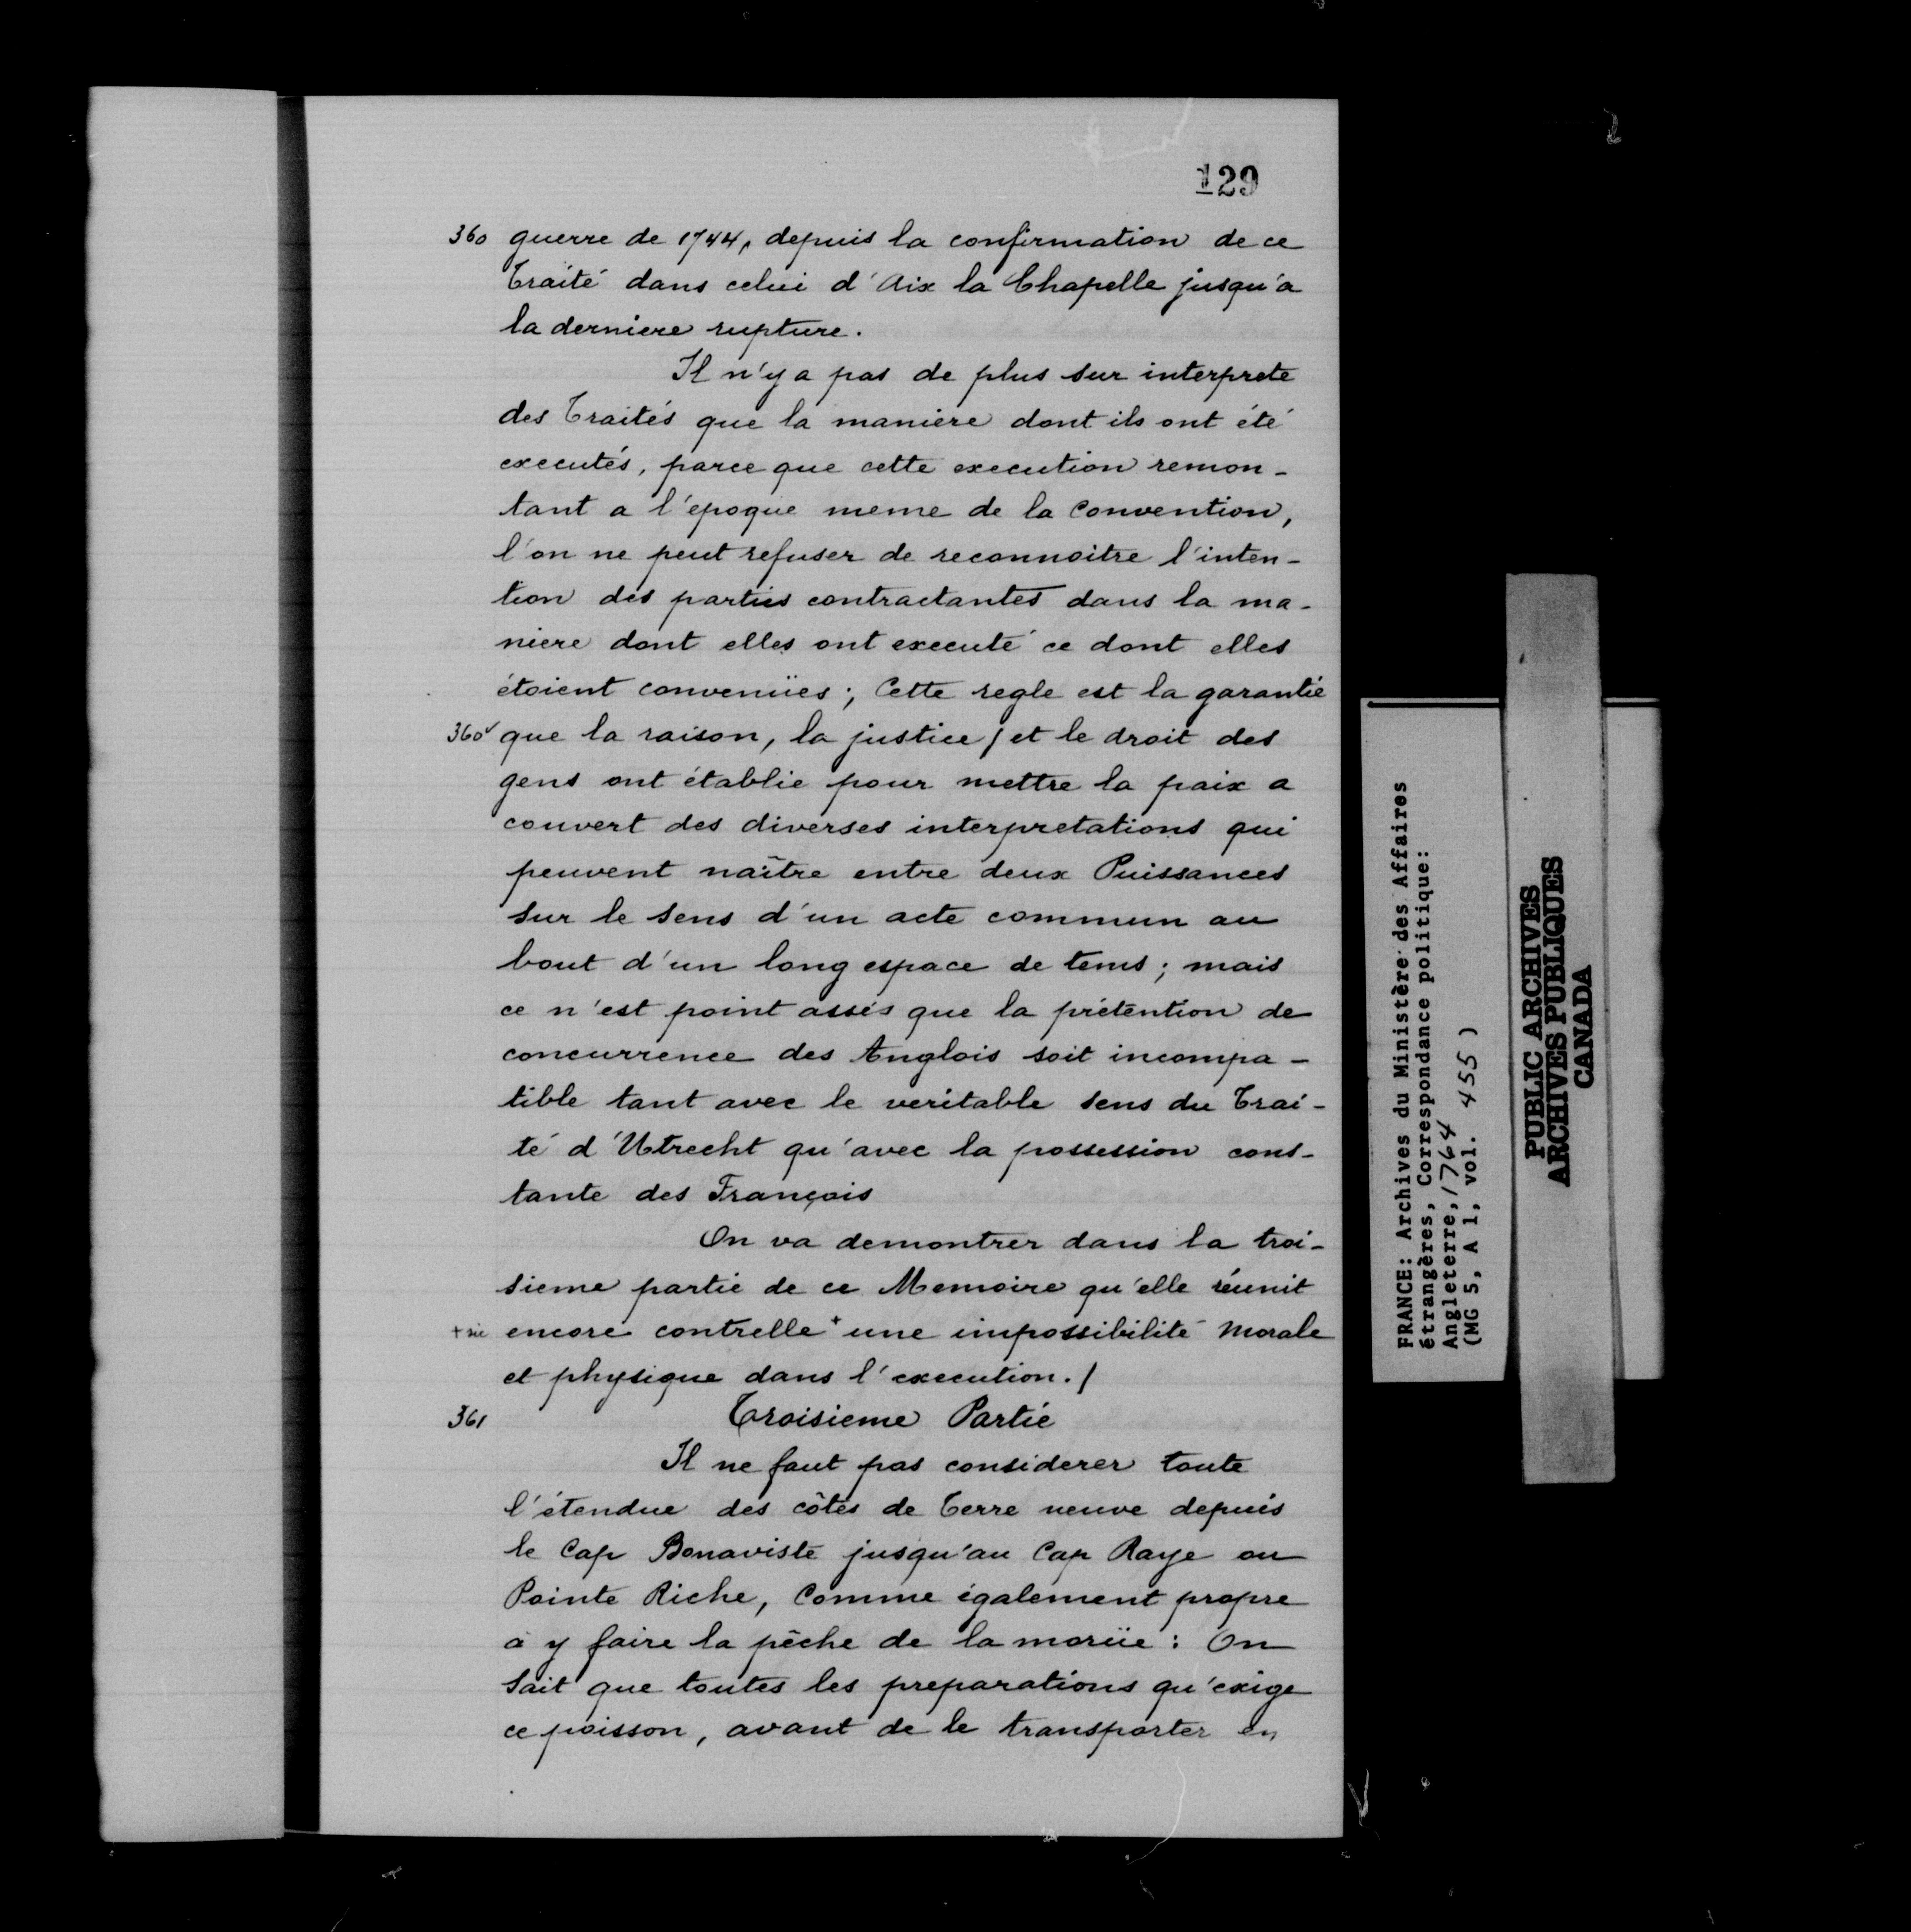 129
360 guerre de 1744, depuis la confirmation de ce
Traité dans celui d'Aix la Chapelle jusqu'a
la derniere rupture.
Il n'y a pas de plus sur interprete
des Traités que la maniere dont ils ont été
executés, parce que cette execution remon-
tant a l'époque meme de la Convention,
l'on ne peut refuser de reconnoitre l'inten-
tion des parties contractantes dans la ma-
niere dont elles ont executé ce dont elles
étoient convenües; Cette regle est la garantie
360v que la raison, la justice / et le droit des
gens ont établie pour mettre la paix a
couvert des diverses interpretations qui
peuvent naître entre deux Puissances
sur le sens d'un acte commun au
bout d'un long espace de tems; mais
ce n'est point assés que la prétention de
concurrence des Anglois soit incompa-
tible tant avec le veritable sens du Trai-
té d'Utrecht qu'avec la possession cons-
tante des François
On va demontrer dans la troi-
sieme partie de ce Memoire qu'elle réunit
+ sic encore contrelle + une impossibilité morale
et physique dans l'execution. /
361 Troisieme Partie
Il ne faut pas considerer toute
l'étendue des côtes de Terre neuve depuis
le Cap Bonaviste jusqu'au Cap Raye ou
Pointe Riche, Comme également propre
à y faire la pêche de la morüe : On
Sait que toutes les preparations qu'exige
ce poisson, avant de le transporter en
FRANCE: Archives du Ministère des Affaires
étrangères, Correspondance politique:
Angleterre, 1764
(MG 5, A 1, vol. 455 )
PUBLIC ARCHIVES
ARCHIVES PUBLIQUES
CANADA